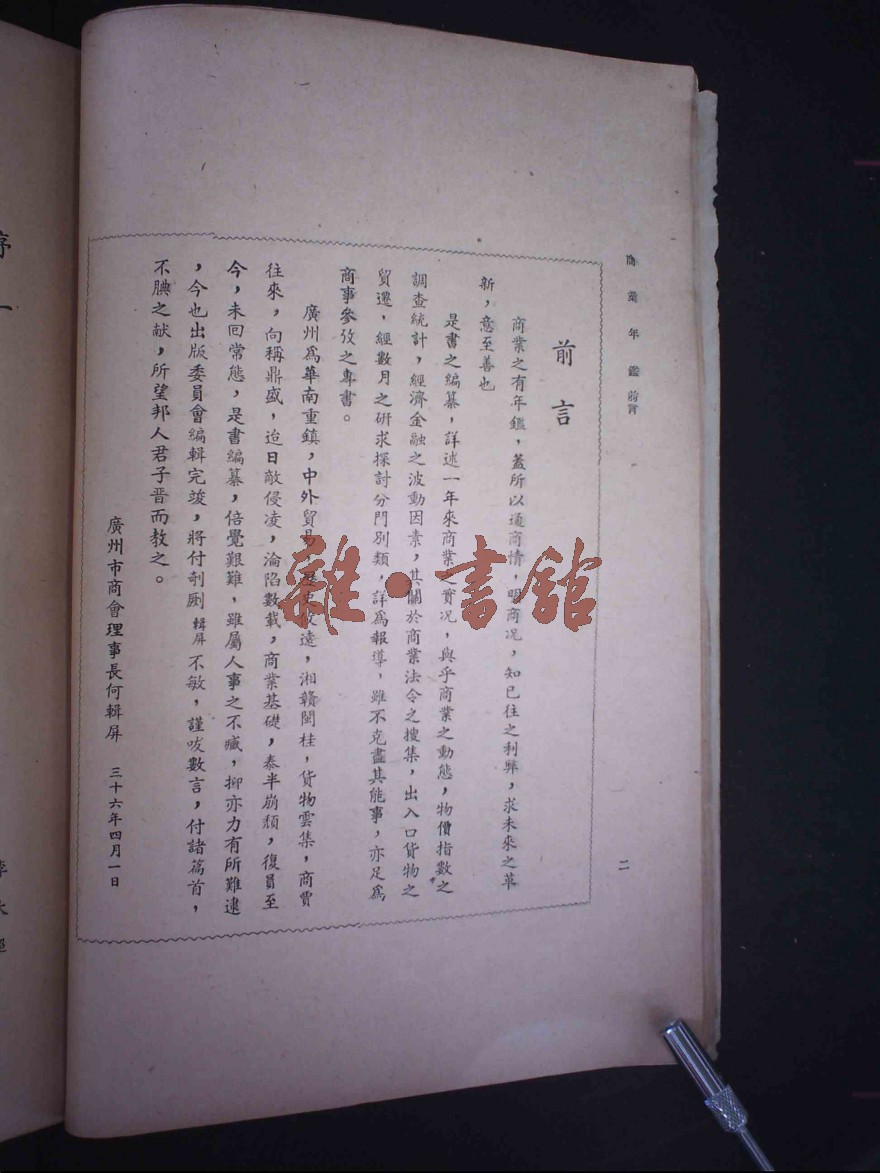 商業年鑑 前言
二
前言
商業之有年鑑，蓋所以通商情，明商况，知已往之利弊，求未來之革
新，意至善也
是書之編纂，詳述一年來商業實况，與乎商業之動態，物價指數之
調查統計，經濟金融之波動因素，其關於商業法令之搜集，出入口貨物之
貿遷，經數月之研求探討分門別類，詳爲報導，雖不克盡其能事，亦足爲
商事參攷之專書。
廣州爲華南重鎮，中外貿易，歷史攸遠，湘贛閩桂，貨物雲集，商賈
往來，向稱鼎盛，迨日敵侵凌，淪陷數載，商業基礎，泰半崩頹，復員至
今，未回常態，是書編纂，倍覺艱難，雖屬人事之不臧，抑亦力有所難逮
，今也出版委員會編輯完竣，將付剞劂 輯屏 不敏，謹以數言，付諸篇首，
不腆之献，所望邦人君子晋而教之。
廣州市商會理事長何輯屏 三十六年四月一日
雜·書館
序一
李大超